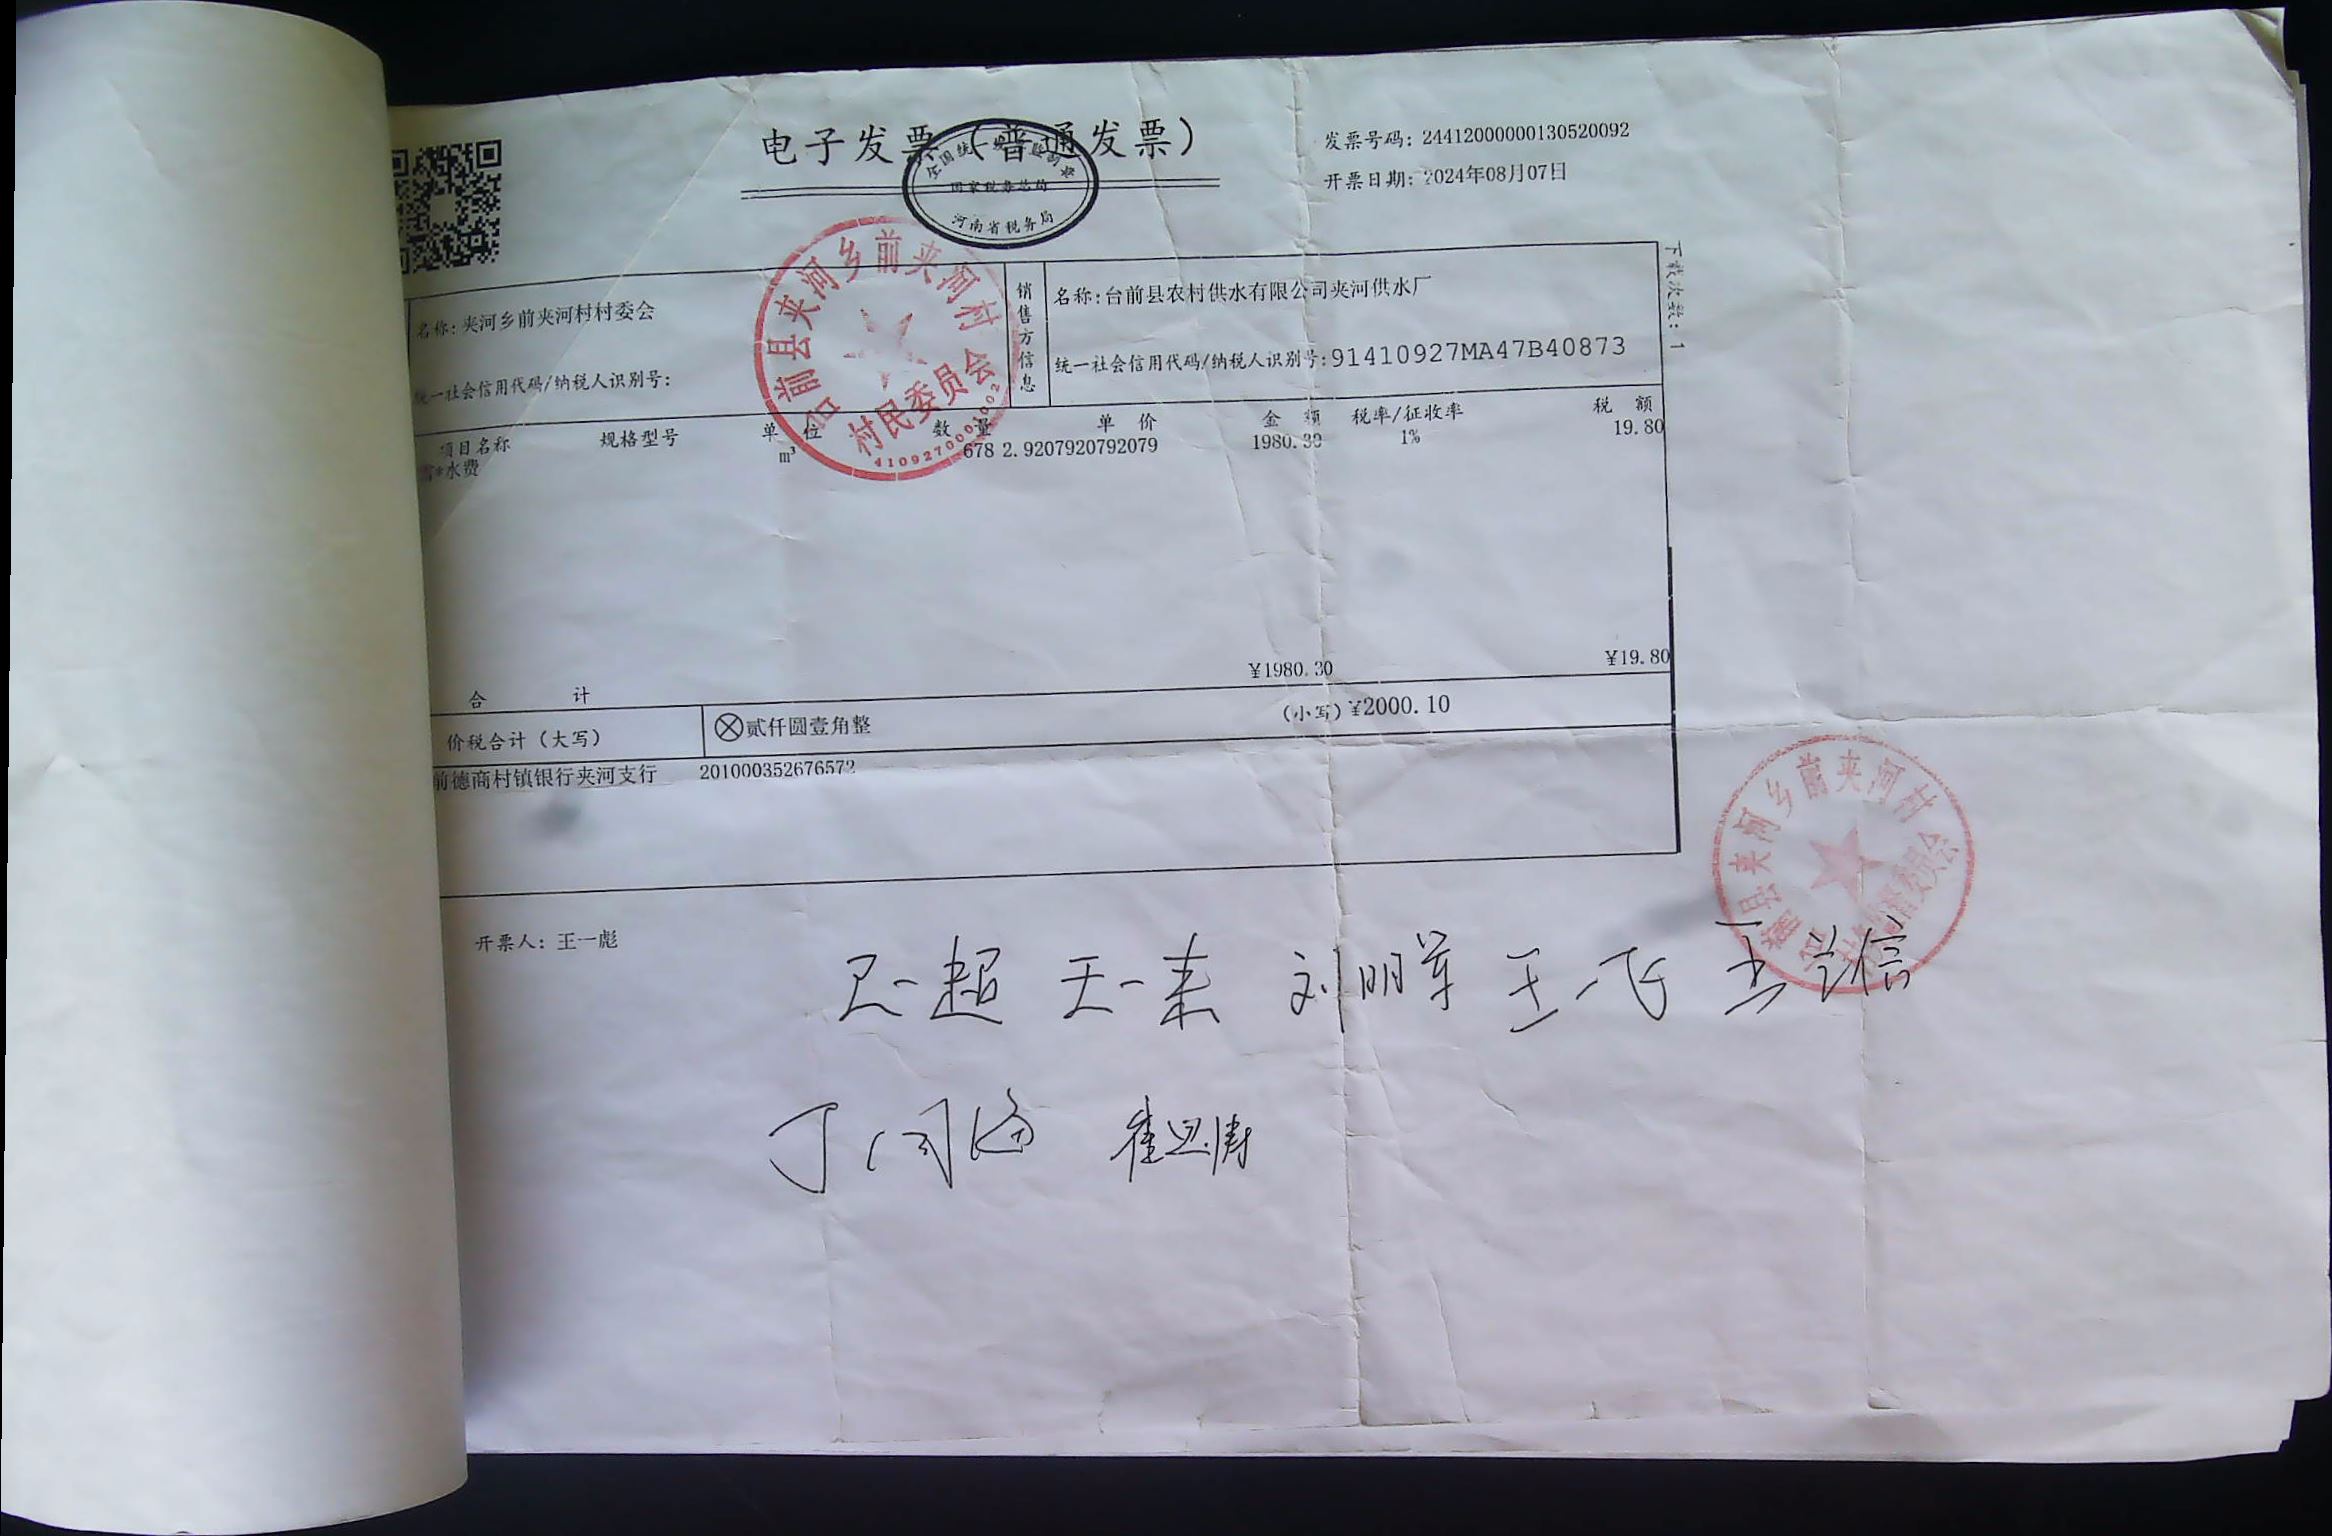 电子发票（普通发票）
全国统一发票监制章
国家税务总局
河南省税务局
发票号码：24412000000130520092
开票日期：2024年08月07日
下载次数：1
名称：夹河乡前夹河村村委会
统一社会信用代码/纳税人识别号：
销售方信息
名称：台前县农村供水有限公司夹河供水厂
统一社会信用代码/纳税人识别号：91410927MA47B40873
台前县夹河乡前夹河村
村民委员会
项目名称 规格型号 单 位 数 量 单 价 金 额 税率/征收率 税 额
*水费 m³ 678 2.9207920792079 1980.30 1% 19.80
合 计 ¥1980.30 ¥19.80
价税合计（大写） ⊗贰仟圆壹角整 （小写）¥2000.10
前德商村镇银行夹河支行 201000352676572
台前县夹河乡前夹河村
开票人：王一彪
王一超 王一来 刘明军 王一飞 王兴信
丁同海